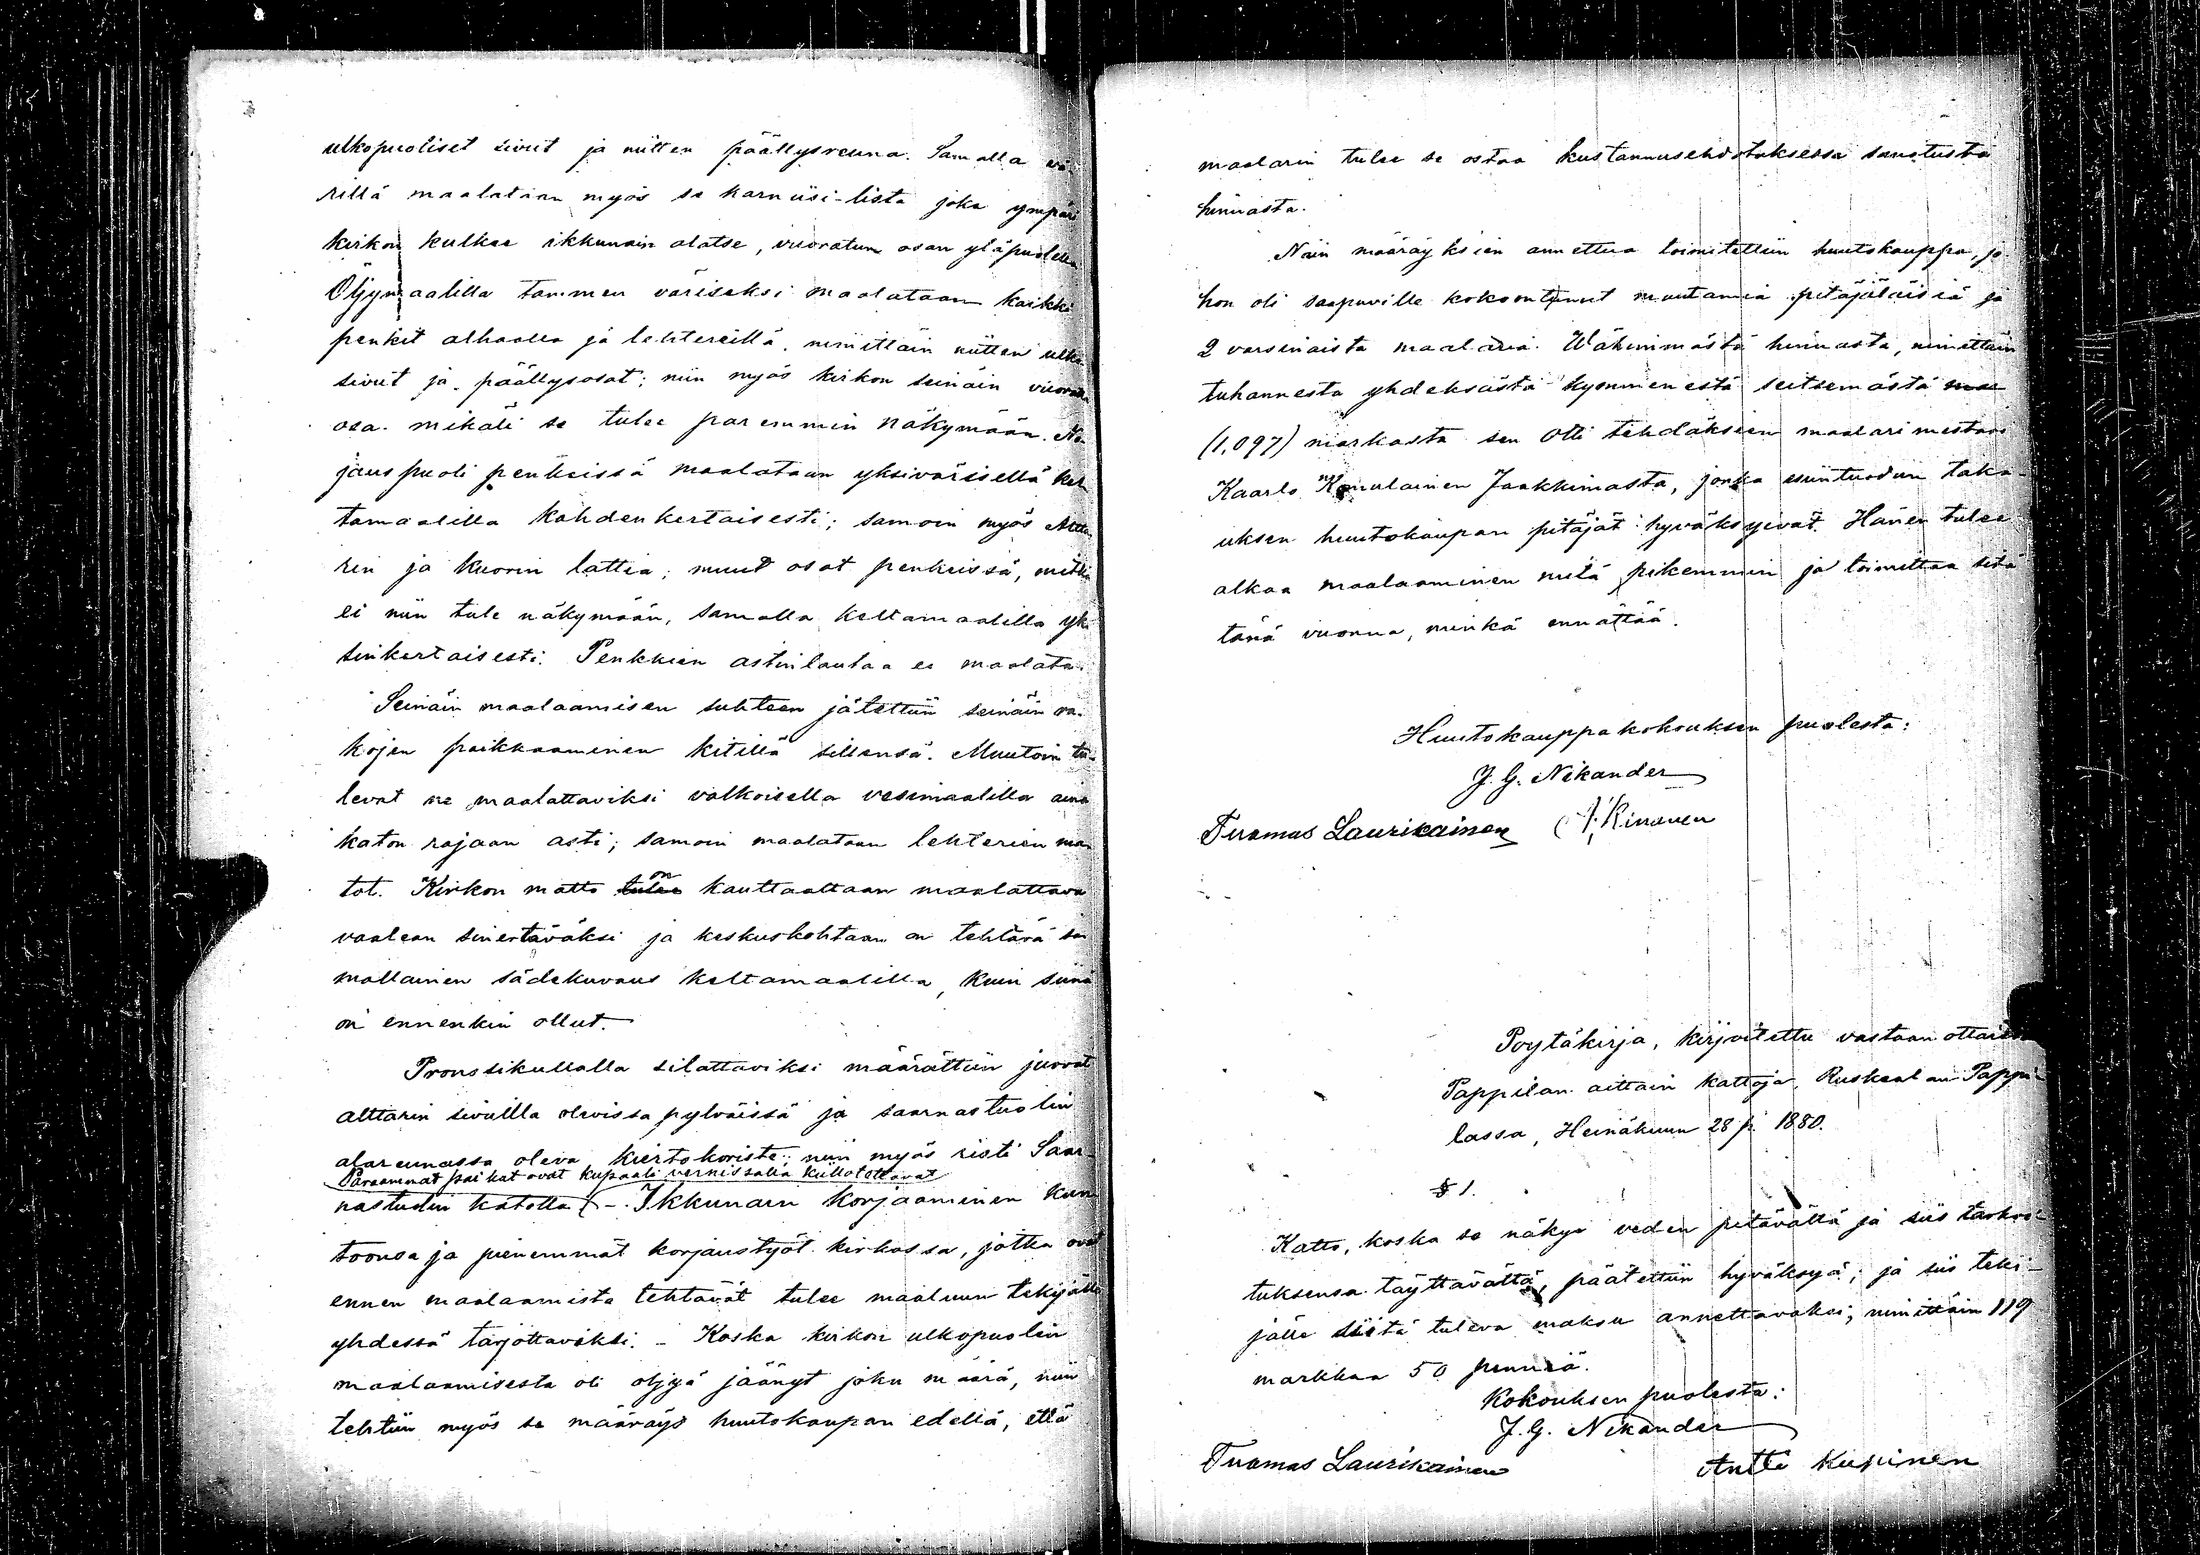 ulkopuoliset sivut ja niitten päällysreuna. Samalla vä-
rillä maalataan myös se karniisi-lista joka ympäri
kirkon kulkee ikkunain alatse, vuoratun osan yläpuolella
Öljymaalilla tammen väriseksi maalataan kaikki
penkit alhaalla ja lehtereillä, nimittäin niitten ulko
sivut ja päällysosat; niin myös kirkon seinäin vuorattu
osa. mikäli se tulee paremmin näkymään. No-
jauspuoli penkeissä maalataan yksivärisellä kel-
tamaalilla kahdenkertaisesti; samoin myös Altta-
rin ja kuorin lattia; muut osat penkeissä, mitkä
ei niin tule näkymään, samalla keltamaalilla yk-
sinkertaisesti. Penkkien astinlautaa ei maalata.
Seinäin maalaamisen suhteen jätettiin seinäin ra-
kojen paikkaaminen kitillä sillensä. Muutoin tu-
levat ne maalattaviksi valkoisella vesimaalilla aina
katon rajaan asti; samoin maalataan lehterien ma-
tot. Kirkon matto tulee on kauttaaltaan maalattava
vaalean sinertäväksi ja keskuskohtaan on tehtävä sa-
mallainen sädekuvaus keltamaalilla, kuin siinä
on ennenkin ollut.
Pronssikullalla silattaviksi määrättiin juovat
alttarin sivuilla olevissa pylväissä ja saarnastuolin
alareunassa oleva kiertokoriste; niin myös risti Saar-
Paraammat paikat ovat kupaali vernissalla kiillotettavat
nastuolin katolla. - Ikkunain korjaaminen kun-
toonsa ja pienemmät korjaustyöt kirkossa, jotka ovat
ennen maalaamista tehtävät tulee maaluun tekijälle
yhdessä tarjottaviksi. - Koska kirkon ulkopuolin
maalaamisesta oli öljyä jäänyt joku määrä, niin
tehtiin myös se määräys huutokaupan edellä, että
maalarin tulee se ostaa kustannusehdotuksessa sanotusta
hinnasta.
Näin määräyksien annettua toimitettiin huutokauppa, jo-
hon oli saapuville kokoontunut muutamia pitäjäläisiä ja
2 varsinaista maalaria. Wähimmästä hinnasta, nimittäin
tuhannesta yhdeksästä kymmenestä seitsemästä mar
(1,097) markasta sen otti tehdäksein maalarimestari
Kaarlo Komulainen Jaakkimasta, jonka esiintuodun taka-
uksen huutokaupan pitäjät hyväksyivät. Hänen tulee
alkaa maalaaminen mitä pikemmin ja toimittaa sitä
tänä vuonna, minkä ennättää.
Huutokauppakokouksen puolesta:
J. G. Nikander
Tuomas Laurikainen A. Kinanen
Poytäkirja, kirjoitettu vastaan ottaissa
Pappilan aittain kattoja, Ruskealan Pappi-
lassa, Heinäkuun 28 p. 1880.
§ 1.
Katto, koska se näkyi veden pitävältä ja siis tarkoi-
tuksensa täyttävältä, päätettiin hyväksyä; ja siis teki-
jälle siitä tuleva maksu annettavaksi; nimittäin 119
markkaa 50 penniä.
Kokouksen puolesta:
J. G. Nikander
Tuomas Laurikainen Antti Kupinen